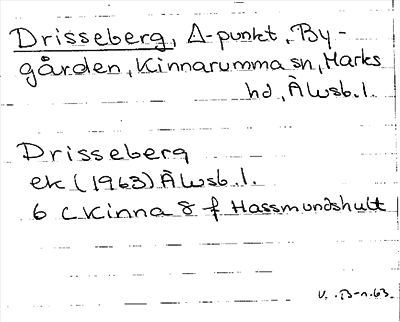 Drisseberg, Δ-punkt, By-
gården, Kinnarumma sn, Marks
hd, Älvsb. l.
Drisseberg
ek (1963) Älvsb. l.
6 c Kinna 8 f Hassmundshult